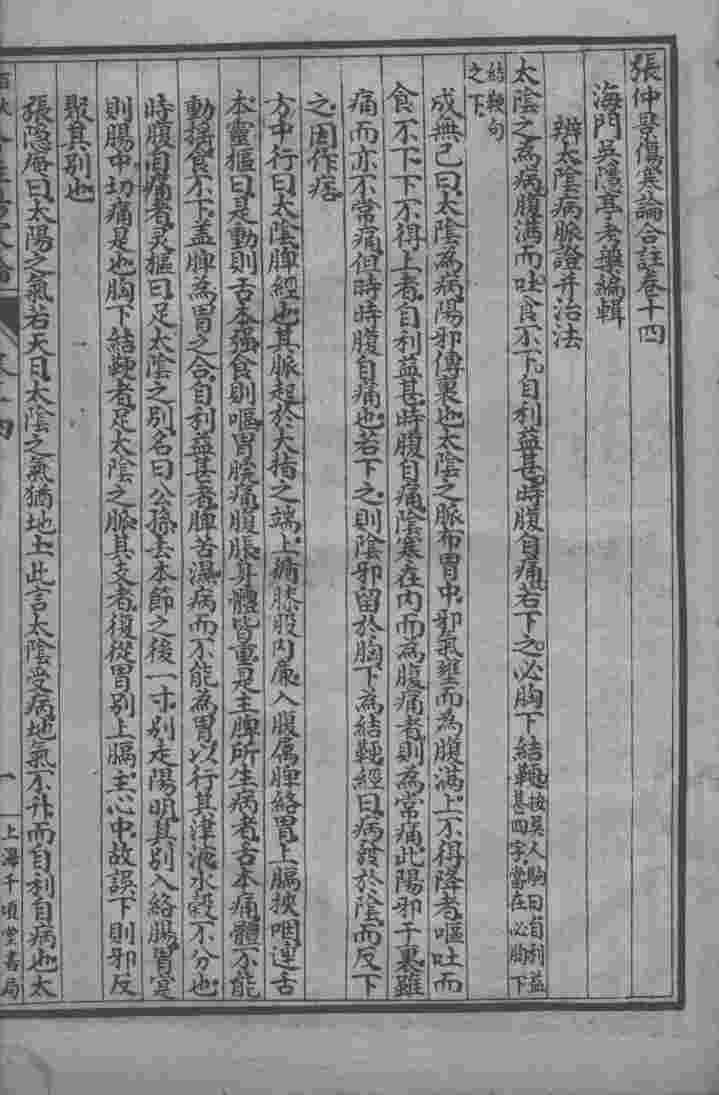 張仲景傷寒論合註卷十四
海門吳隱亭考槃編輯
辨太陰病脈證并治法
太陰之為病腹滿而吐食不下自利益甚時腹自痛若下之必胸下結鞕按吳人駒曰自利益甚四字當在必胸下
結鞕句之下
成無己曰太陰為病陽邪傳裏也太陰之脈布胃中邪氣壅而為腹滿上不得降者嘔吐而
食不下下不得上者自利益甚時腹自痛陰寒在內而為腹痛者則為常痛此陽邪干裏雖
痛而亦不常痛但時時腹自痛也若下之則陰邪留於胸下為結鞕經曰病發於陰而反下
之因作痞
方中行曰太陰脾經也其脈起於大指之端上循膝股內廉入腹屬脾絡胃上膈挾咽連舌
本靈樞曰是動則舌本强食則嘔胃脘痛腹脹身體皆重是主脾所生病者舌本痛體不能
動搖食不下蓋脾為胃之合自利益甚者脾苦濕病而不能為胃以行其津液水穀不分也
時腹自痛者灵樞曰足太陰之別名曰公孫去本節之後一寸別走陽明其別入絡腸胃寔
則腸中切痛是也胸下結鞕者足太陰之脈其支者復從胃別上膈主心中故誤下則邪反
聚其別也
張隐庵曰太陽之氣若天日太陰之氣猶地土此言太陰受病地氣不升而自利自病也太
一
上海千頃堂書局